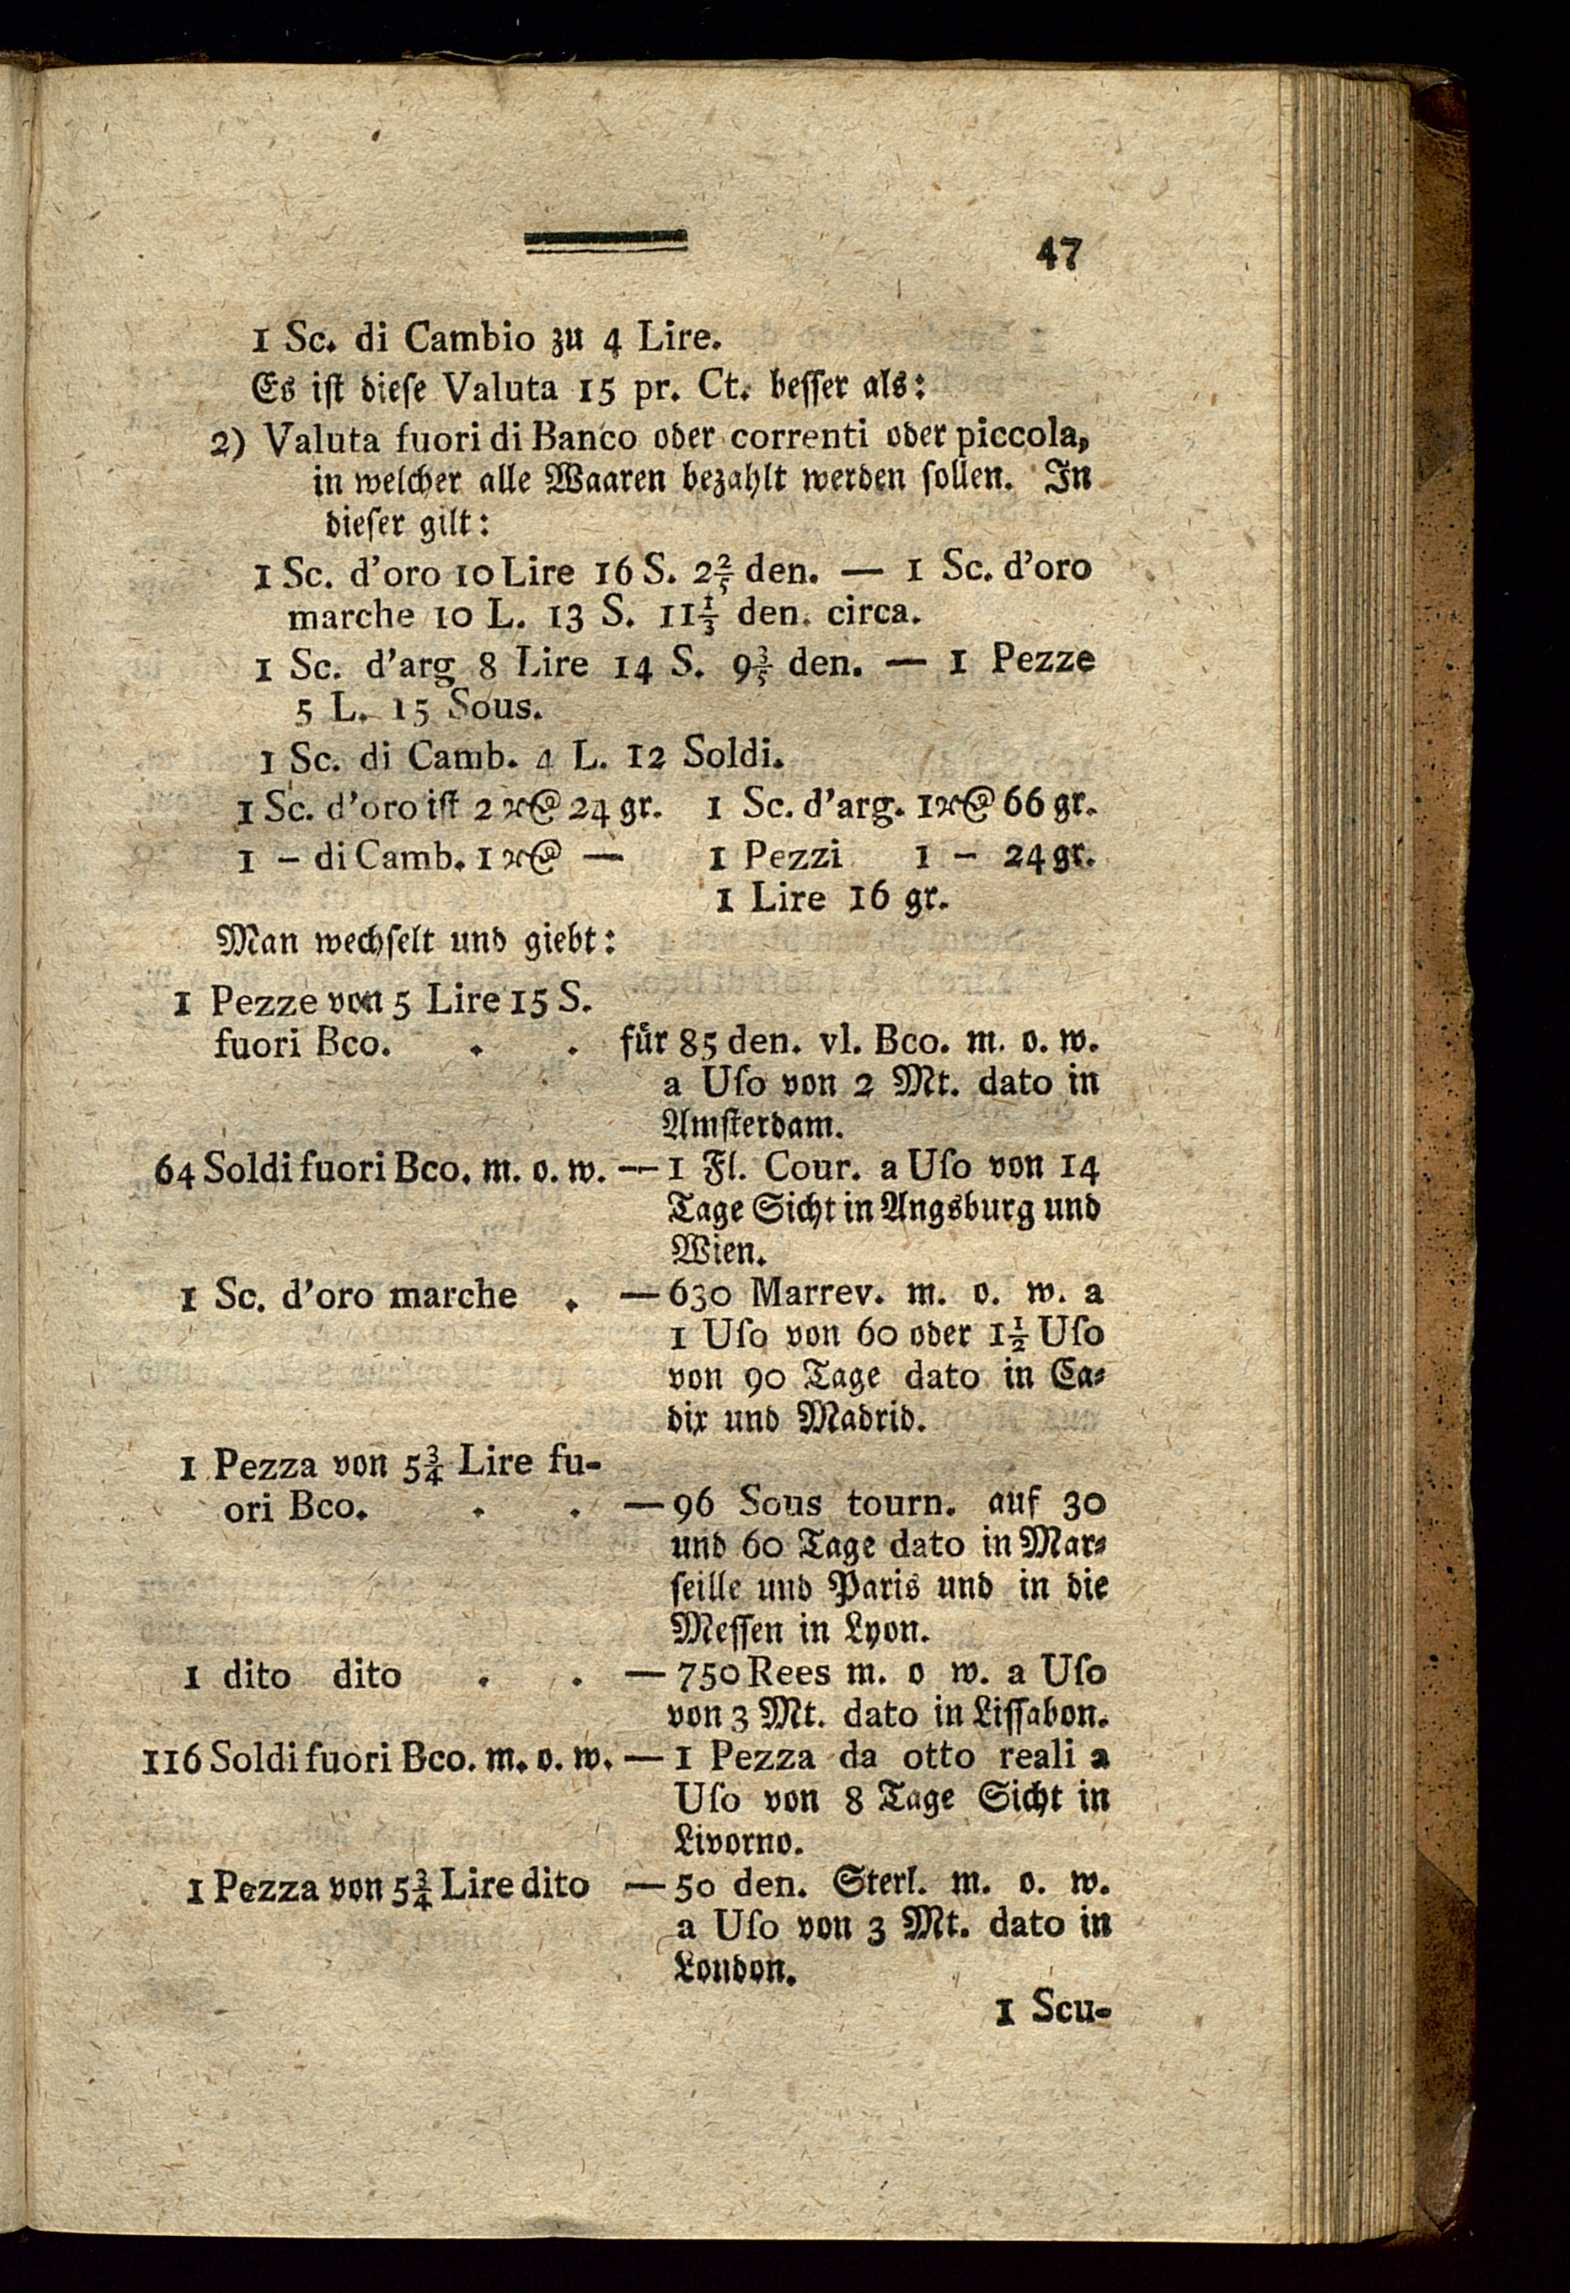 47
1 Sc. di Cambio zu 4 Lire.
Es ist diese Valuta 15 pr. Ct. besser als:
2) Valuta fuori di Banco oder correnti oder piccola,
in welcher alle Waaren bezahlt werden sollen. In
dieser gilt:
1 Sc. d'oro 10 Lire 16 S. 2 2/5 den. — 1 Sc. d'oro
marche 10 L. 13 S. 11 1/3 den. circa.
1 Sc. d'arg 8 Lire 14 S. 9 3/5 den. — 1 Pezze
5 L. 15 Sous.
1 Sc. di Camb. 4 L. 12 Soldi.
1 Sc. d'oro ist 2 24 gr. 1 Sc. d'arg. 1 66 gr.
1 – di Camb. 1 — 1 Pezzi 1 – 24 gr.
1 Lire 16 gr.
Man wechselt und giebt:
1 Pezze von 5 Lire 15 S.
fuori Bco. . . für 85 den. vl. Bco. m. o. w.
a Uſo von 2 Mt. dato in
Amsterdam.
64 Soldi fuori Bco. m. o. w. — 1 Fl. Cour. a Uſo von 14
Tage Sicht in Angsburg und
Wien.
1 Sc. d'oro marche . — 630 Marrev. m. o. w. a
1 Uſo von 60 oder 1 1/2 Uſo
von 90 Tage dato in Ca-
dix und Madrid.
1 Pezza von 5 3/4 Lire fu-
ori Bco. . . — 96 Sous tourn. auf 30
und 60 Tage dato in Mar-
seille und Paris und in die
Messen in Lyon.
1 dito dito . . — 750 Rees m. o w. a Uſo
von 3 Mt. dato in Lissabon.
116 Soldi fuori Bco. m. o. w. — 1 Pezza da otto reali a
Uſo von 8 Tage Sicht in
Livorno.
1 Pezza von 5 3/4 Lire dito — 50 den. Sterl. m. o. w.
a Uſo von 3 Mt. dato in
London.
1 Scu-